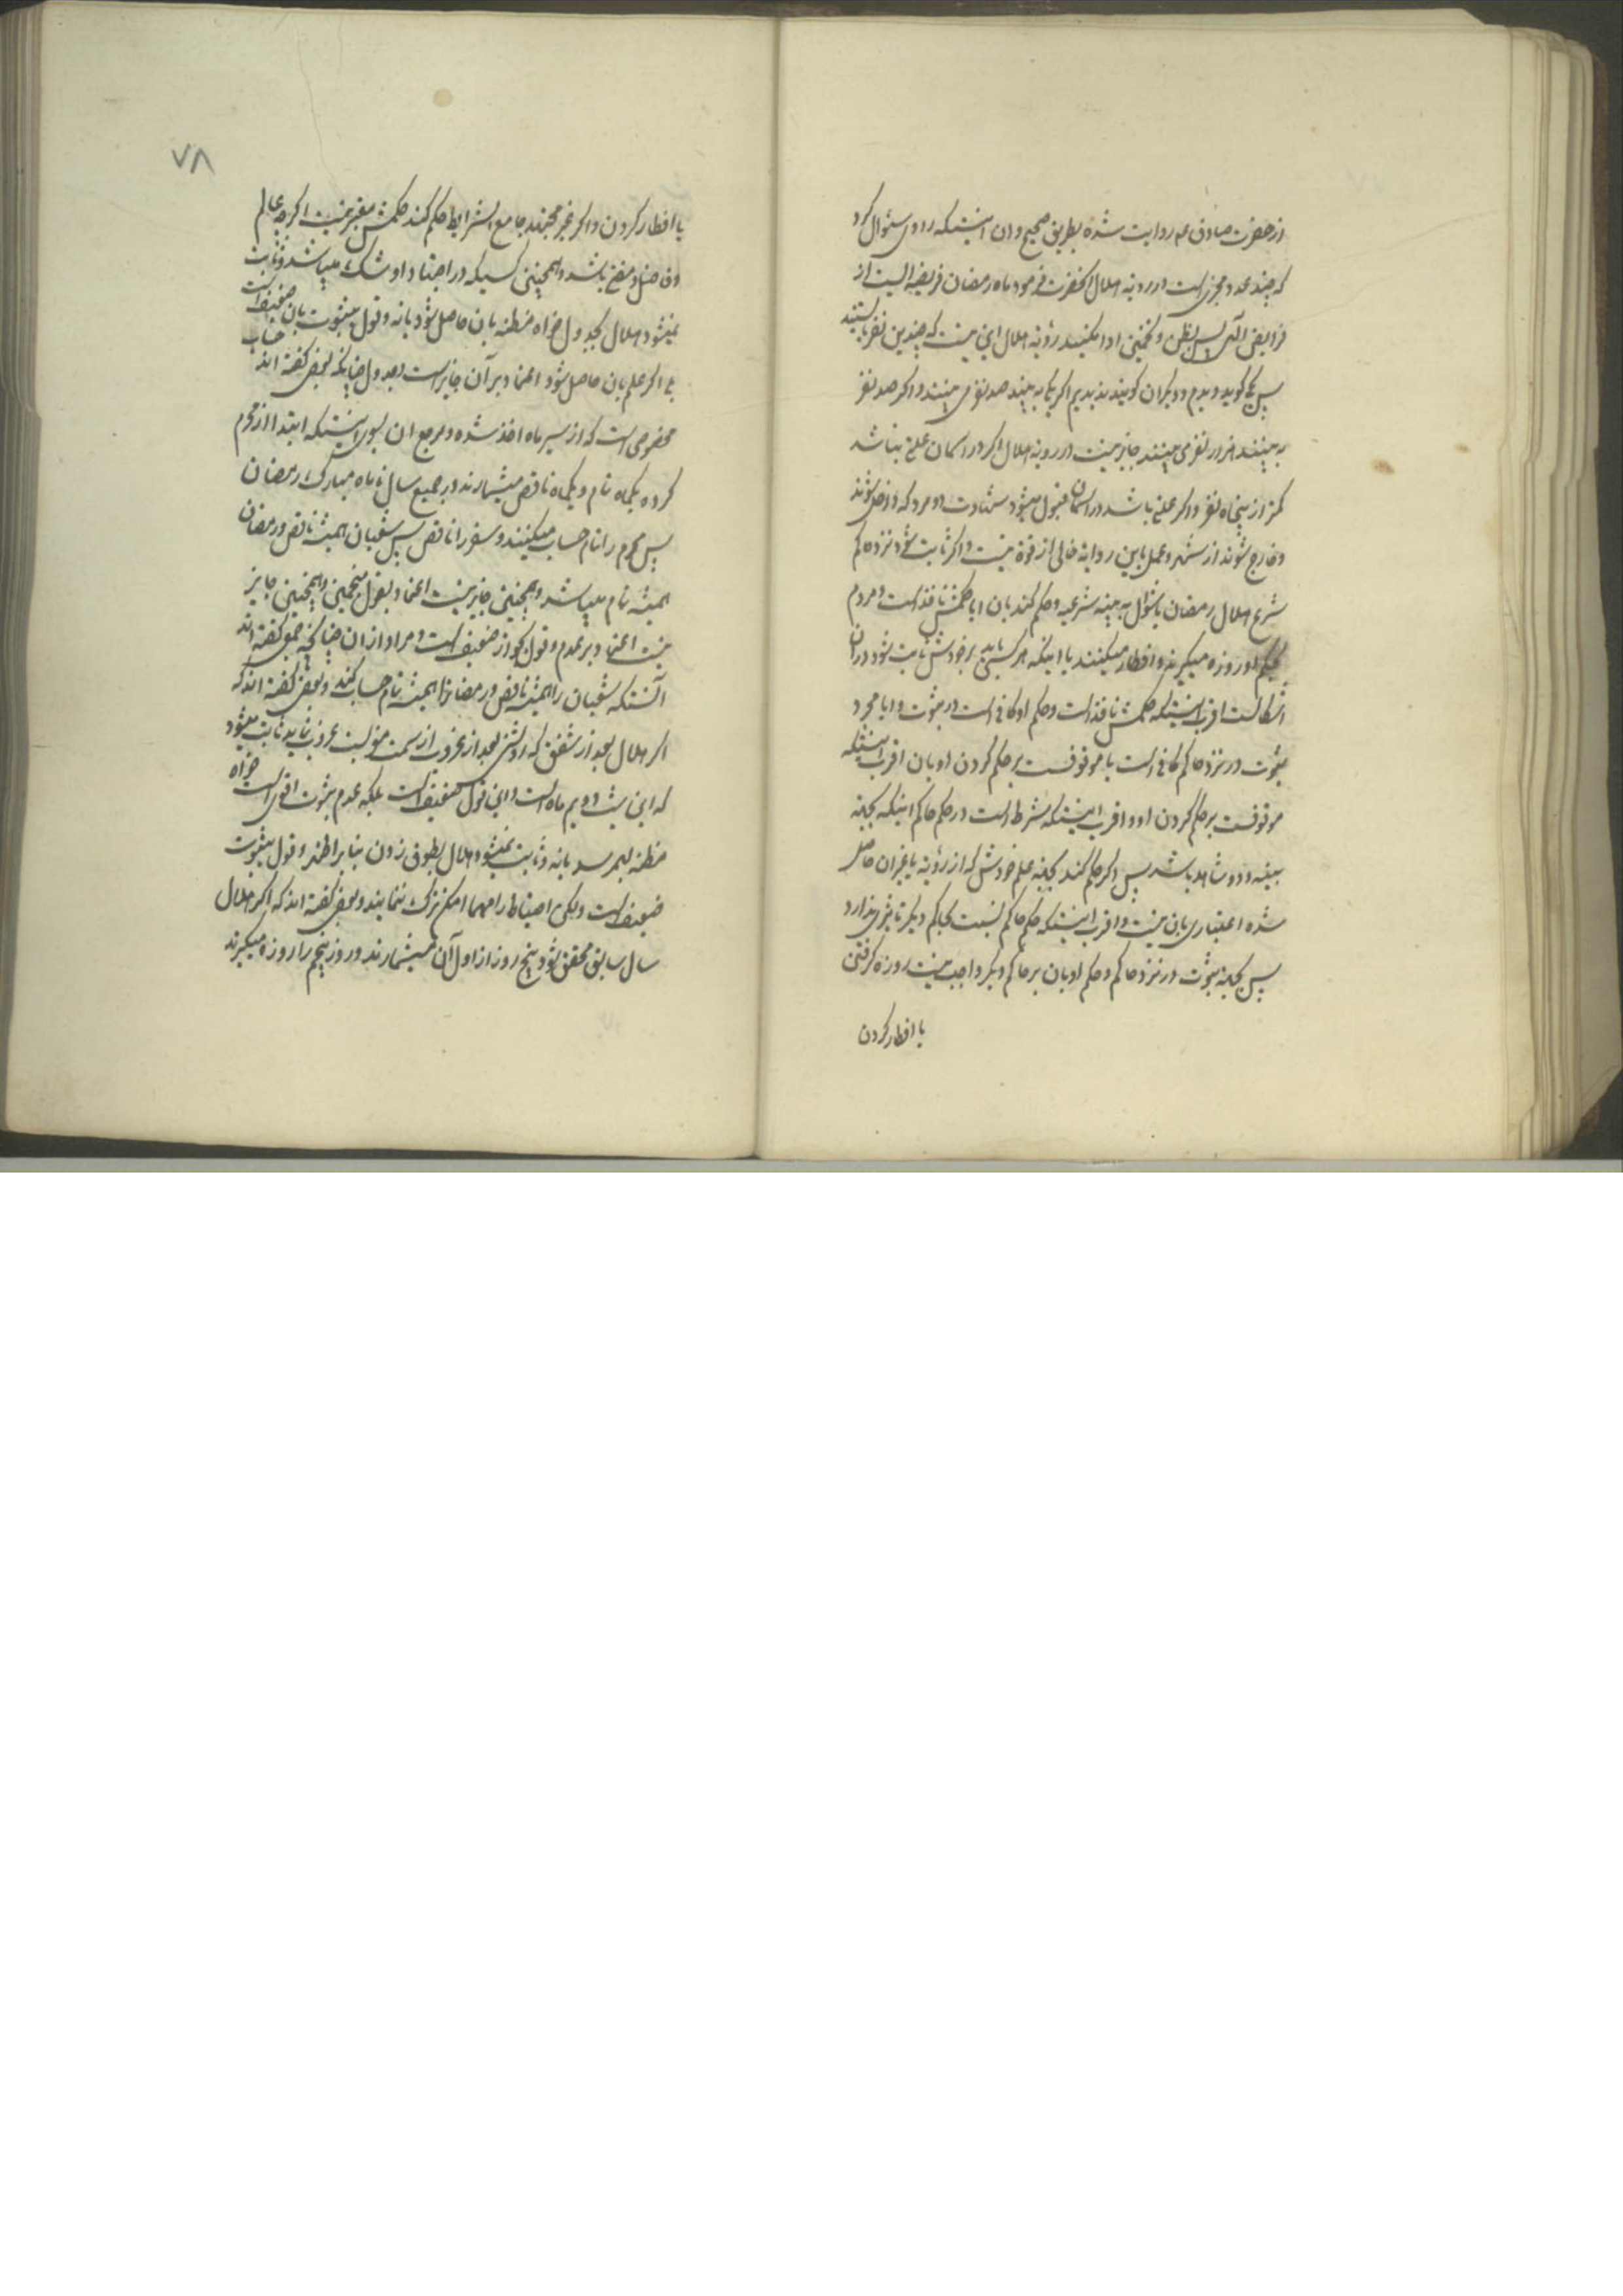 از حضرت صادق عم روایت شده بطریق صحیح و ان اینستکه راوی سئوال کرد
که چند عدد مجزی است در رویة هلال انحضرت فرمود ماه رمضان فریضه ایست از
فرایض الهی پس بظن و تخمین ادا مکنید رؤیة هلال این نیست که چندین نفر بایستند
پس یکی کوید دیدم و دیکران کویند ندیدیم اکر یکی به بیند صد نفر می بینند و اکر صد نفر
به بینند هزار نفر می بینند جایز نیست در رویة هلال اکر در اسمان علتی نباشد
کمتر از پنجاه نفر و اکر علتی باشد در اسمان قبول میشود شهادت دو مرد که داخل شوند
و خارج شوند از شهر و عمل باین روایة خالی از قوة نیست و اکر ثابت شود نزد حاکم
شرع هلال رمضان یا شوال به بینه شرعیه و حکم کند بان ایا حکمش نافذ است و مردم
بحکم او روزه میکیرند و افطار میکنند یا اینکه هر کسی باید بر خودش ثابت شود در ان
اشکالست اقرب اینستکه حکمش نافذ است و حکم او کافی است در ثبوت و ایا مجرد
ثبوت در نزد حاکم کافی است یا موقوفست بر حکم کردن او بان اقرب اینستکه
موقوفست بر حکم کردن او و اقرب اینستکه شرط است در حکم حاکم اینکه بجهة
بینه و دو شاهد باشد پس اکر حکم کند بجهة علم خودش که از رؤیة یا غیر ان حاصل
شده اعتباری بان نیست و اقرب اینستکه حکم حاکم نسبت بحاکم دیکر تاثیری ندارد
پس بجهة ثبوت در نزد حاکم و حکم او بان بر حاکم دیکر واجب نیست روزه کرفتن
یا افطار کردن
۷۸
یا افطار کردن و اکر غیر مجتهد جامع الشرایط حکم کند حکمش معتبر نیست اکر چه عالم
و فاضل و متقی باشد و همچنین کسیکه در اجتهاد او شک میباشد و ثابت
نمیشود هلال بجدول خواه مظنه بان حاصل شود یا نه و قول بثبوت بان ضعیف است
بلی اکر علم بان حاصل شود اعتماد بر آن جایز است و جدول چنانکه بعض کفته اند حساب
مخصوصی است که از سیر ماه اخذ شده و مرجع ان بسوی اینستکه ابتدا از محرم
کرده یکماه تام و یکماه ناقص میشمارند در جمیع سال تا ماه مبارک رمضان
پس محرم را تام حساب میکنند و سفر را ناقص پس شعبان همیشه ناقص و رمضان
همیشه تام میباشد و همچنین جایز نیست اعتماد بقول منجمین و همچنین جایز
نیست اعتماد بر عدد و قول بجواز ضعیف است و مراد از ان چنانچه جمعی کفته اند
آنستکه شعبان را همیشه ناقص و رمضانرا همیشه تام حساب کند و بعضی کفته اند که
اکر هلال بعد از شفق که روشنی بعد از غروب از سمت مغربست غروب نماید ثابت میشود
که این شب دویم ماه است و این قول ضعیف است بلکه عدم ثبوت اقوی است خواه
مظنه بهم رسد یا نه و ثابت نمیشود هلال بطوق زدن بنا بر اظهر و قول بثبوت
ضعیف است ولکن احتیاط را مهما امکن ترک ننمایند و بعض کفته اند که اکر هلال
سال سابق محقق شود پنج روز از اول آن میشمارند و روز پنجم را روزه میکیرند